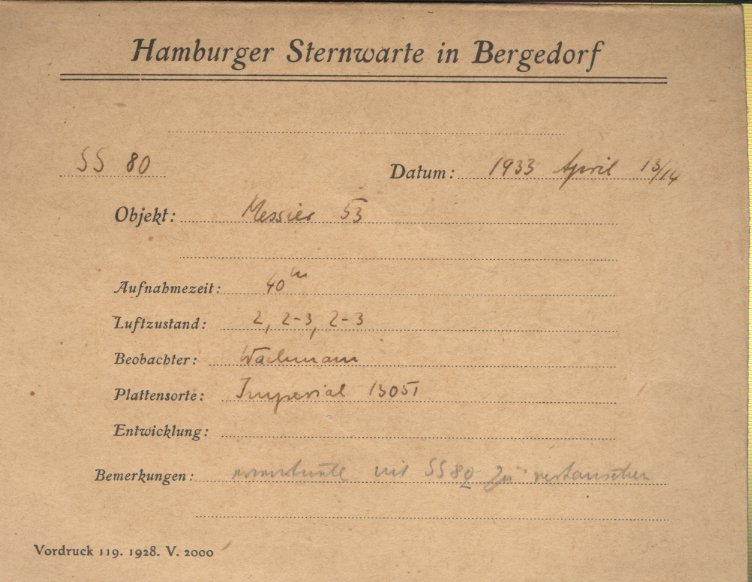 Hamburger Sternwarte in Bergedorf
SS 80 Datum: 1933 April 13/14
Objekt: Messier 53
Aufnahmezeit: 40m
Luftzustand: 2, 2-3, 2-3
Beobachter: Wachmann
Plattensorte: Imperial 1305
Entwicklung:
Bemerkungen: mit SS 80 zu vertauschen
Vordruck 119. 1928. V. 2000